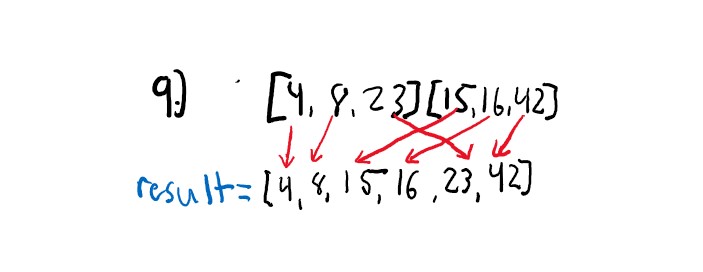 9.) [4, 8, 23][15,16,42]
result=[4, 8, 15, 16, 23, 42]